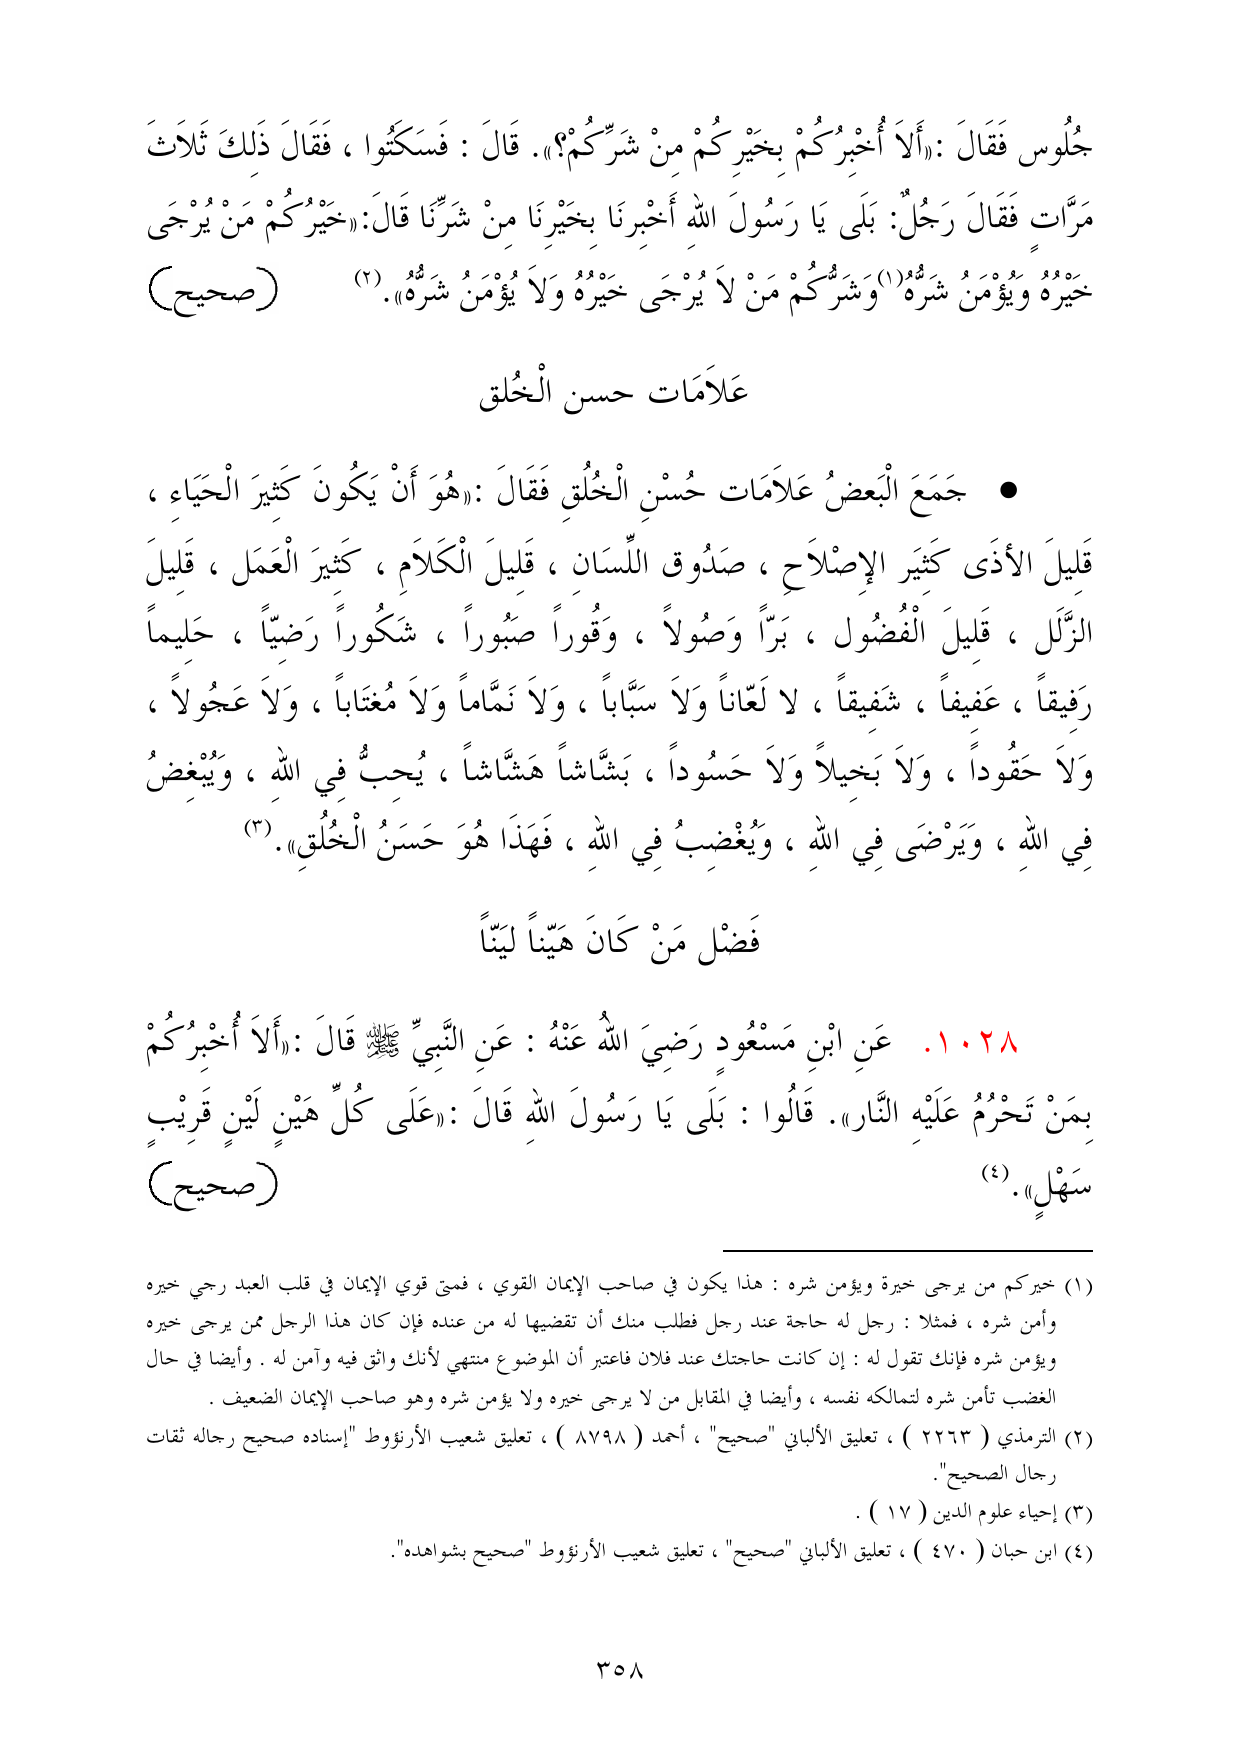 جُلُوس فَقَالَ :«أَلاَ أُخْبِرُكُمْ بِخَيْرِكُمْ مِنْ شَرِّكُمْ؟». قَالَ : فَسَكَتُوا ، فَقَالَ ذَلِكَ ثَلاَثَ
مَرَّاتٍ فَقَالَ رَجُلٌ: بَلَى يَا رَسُولَ اللهِ أَخْبِرنَا بِخَيْرِنَا مِنْ شَرِّنَا قَالَ:«خَيْرُكُمْ مَنْ يُرْجَى
خَيْرُهُ وَيُؤْمَنُ شَرُّهُ(١)وَشَرُّكُمْ مَنْ لاَ يُرْجَى خَيْرُهُ وَلاَ يُؤْمَنُ شَرُّهُ».(٢) (صحيح)
عَلاَمَات حسن الْخُلق
● جَمَعَ الْبَعضُ عَلاَمَات حُسْنِ الْخُلُقِ فَقَالَ :«هُوَ أَنْ يَكُونَ كَثِيرَ الْحَيَاءِ ،
قَلِيلَ الأذَى كَثِيَر الإِصْلاَحِ ، صَدُوق اللِّسَانِ ، قَلِيلَ الْكَلاَمِ ، كَثِيرَ الْعَمَل ، قَلِيلَ
الزَّلَل ، قَلِيلَ الْفُضُول ، بَرّاً وَصُولاً ، وَقُوراً صَبُوراً ، شَكُوراً رَضِيّاً ، حَلِيماً
رَفِيقاً ، عَفِيفاً ، شَفِيقاً ، لا لَعّاناً وَلاَ سَبَّاباً ، وَلاَ نَمَّاماً وَلاَ مُغتَاباً ، وَلاَ عَجُولاً ،
وَلاَ حَقُوداً ، وَلاَ بَخِيلاً وَلاَ حَسُوداً ، بَشَّاشاً هَشَّاشاً ، يُحِبُّ فِي اللهِ ، وَيُبْغِضُ
فِي اللهِ ، وَيَرْضَى فِي اللهِ ، وَيُغْضِبُ فِي اللهِ ، فَهَذَا هُوَ حَسَنُ الْخُلُقِ».(٣)
فَضْل مَنْ كَانَ هَيّناً ليَنّاً
١٠٢٨. عَنِ ابْنِ مَسْعُودٍ رَضِيَ اللهُ عَنْهُ : عَنِ النَّبِيِّ ﷺ قَالَ :«أَلاَ أُخْبِرُكُمْ
بِمَنْ تَحْرُمُ عَلَيْهِ النَّار». قَالُوا : بَلَى يَا رَسُولَ اللهِ قَالَ :«عَلَى كُلِّ هَيْنٍ لَيْنٍ قَرِيْبٍ
سَهْلٍ».(٤) (صحيح)
(١) خيركم من يرجى خيرة ويؤمن شره : هذا يكون في صاحب الإيمان القوي ، فمتى قوي الإيمان في قلب العبد رجي خيره
وأمن شره ، فمثلا : رجل له حاجة عند رجل فطلب منك أن تقضيها له من عنده فإن كان هذا الرجل ممن يرجى خيره
ويؤمن شره فإنك تقول له : إن كانت حاجتك عند فلان فاعتبر أن الموضوع منتهي لأنك واثق فيه وآمن له . وأيضا في حال
الغضب تأمن شره لتمالكه نفسه ، وأيضا في المقابل من لا يرجى خيره ولا يؤمن شره وهو صاحب الإيمان الضعيف .
(٢) الترمذي ( ٢٢٦٣ ) ، تعليق الألباني "صحيح" ، أحمد ( ٨٧٩٨ ) ، تعليق شعيب الأرنؤوط "إسناده صحيح رجاله ثقات
رجال الصحيح".
(٣) إحياء علوم الدين ( ١٧ ) .
(٤) ابن حبان ( ٤٧٠ ) ، تعليق الألباني "صحيح" ، تعليق شعيب الأرنؤوط "صحيح بشواهده".
٣٥٨